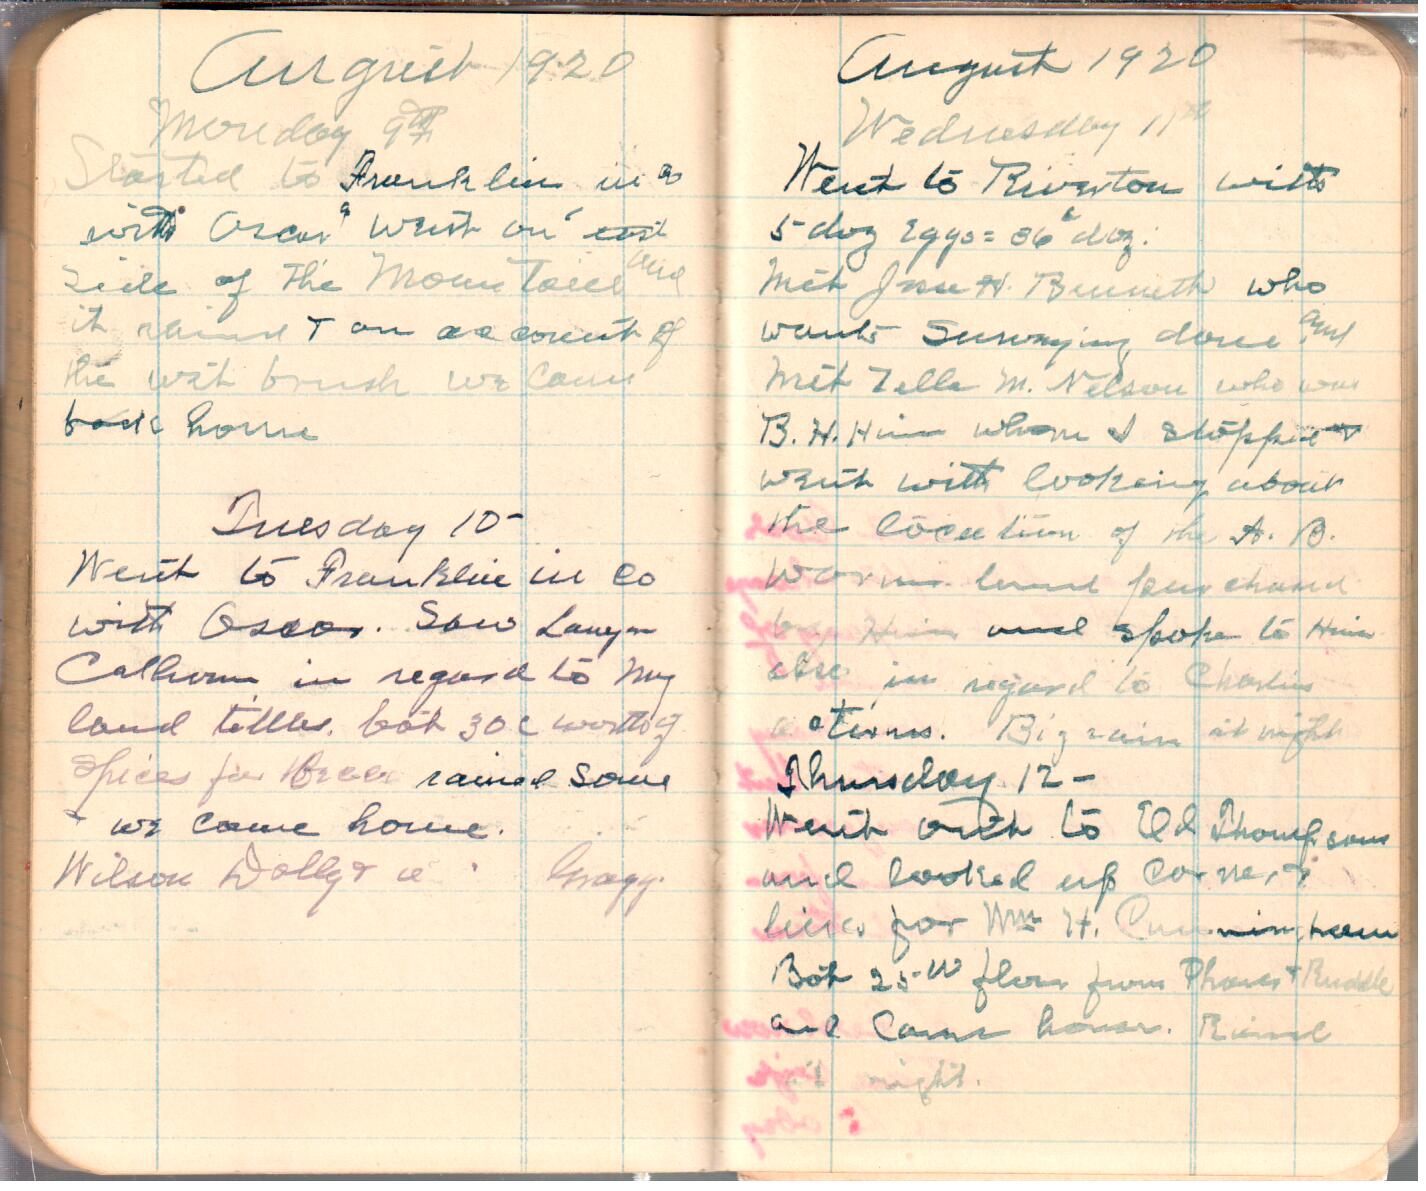 August 1920
Monday 9th
Started to Franklin in a
with Oscar & went on east
side of the Mountain and
it rained & on account of
the wet brush we came
back home
Tuesday 10-
Went to Franklin in co
with Oscar. Saw Lawyer
Calhoun in regard to my
land titles. bot 30c worth of
spices for rained some
& we came home.
Wilson Dolly & Gragg.
August 1920
Wednesday 11th
Went to Riverton with
5 doz Eggs = 36c doz.
Met Jesse H. Bennett who
wants Surveying done and
Met Zella M. Nelson who was
B. H. Hiner whom I stopped &
went with looking about
the location of the A. B.
land purchased
by Him and spoke to Him
also in regard to Charlies
actions. Big rain at night
Thursday 12-
Went to Ed Thompsons
and looked up corners &
lines for Wm H. Cunningham
Bot 25 lb flour from Phares & Ruddle
and Came home. Rained
at night.